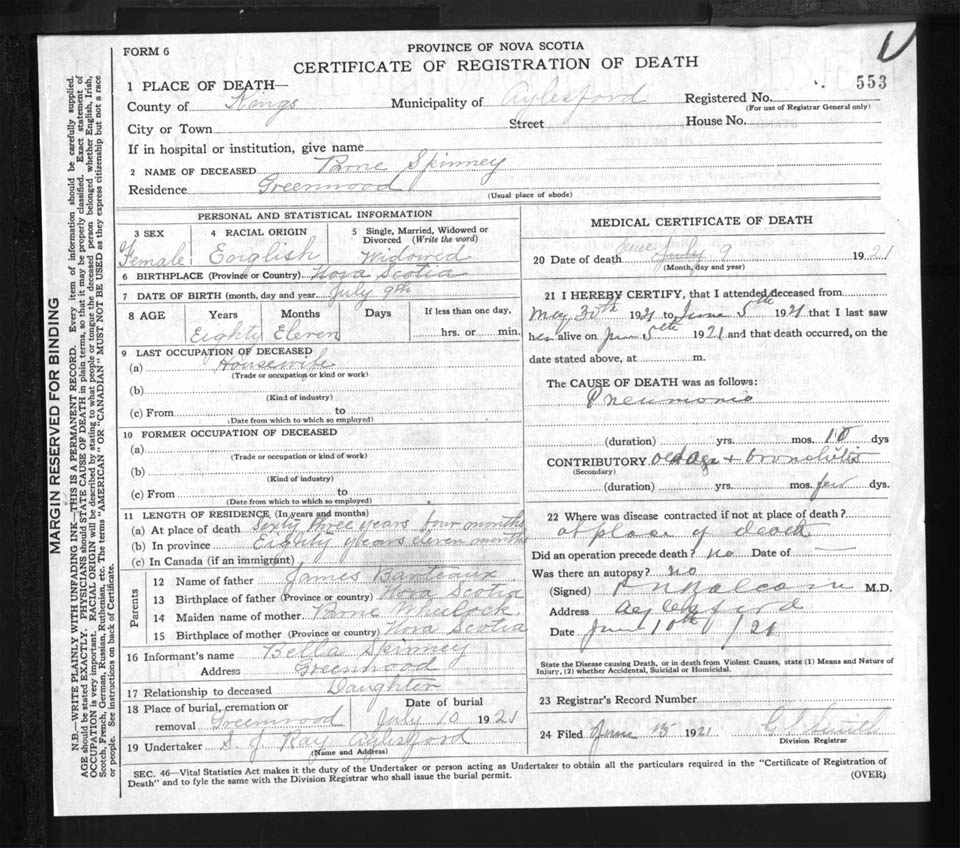 FORM 6
PROVINCE OF NOVA SCOTIA
CERTIFICATE OF REGISTRATION OF DEATH
553
1 PLACE OF DEATH—
County of Kings Municipality of Aylesford Registered No.
(For use of Registrar General only)
City or Town Street House No.
If in hospital or institution, give name
2 NAME OF DECEASED Spinney
Residence Greenwood
(Usual place of abode)
PERSONAL AND STATISTICAL INFORMATION
3 SEX Female
4 RACIAL ORIGIN English
5 Single, Married, Widowed or Divorced (Write the word) Widowed
6 BIRTHPLACE (Province or Country) Nova Scotia
7 DATE OF BIRTH (month, day and year) July 9th
8 AGE Years Months Days If less than one day,
Eighty Eleven hrs. or min.
9 LAST OCCUPATION OF DECEASED
(a) Housewife
(Trade or occupation or kind or work)
(b)
(Kind of industry)
(c) From to
(Date from which to which so employed)
10 FORMER OCCUPATION OF DECEASED
(a)
(Trade or occupation or kind or work)
(b)
(Kind of industry)
(c) From to
(Date from which to which so employed)
11 LENGTH OF RESIDENCE (In years and months)
(a) At place of death Sixty three years four months
(b) In province Eighty years eleven months
(c) In Canada (if an immigrant)
Parents
12 Name of father James Banteaux
13 Birthplace of father (Province or country) Nova Scotia
14 Maiden name of mother Wheelock
15 Birthplace of mother (Province or country) Nova Scotia
16 Informant's name Bella Spinney
Address Greenwood
17 Relationship to deceased Daughter
18 Place of burial, cremation or removal Greenwood
Date of burial July 10 1921
19 Undertaker S J Ray Aylesford
(Name and Address)
MEDICAL CERTIFICATE OF DEATH
20 Date of death June July 9 1921
(Month, day and year)
21 I HEREBY CERTIFY, that I attended deceased from
May 30th 1921 to June 5th 1921 that I last saw
her alive on June 5th 1921 and that death occurred, on the
date stated above, at m.
The CAUSE OF DEATH was as follows:
Pneumonia
(duration) yrs. mos. 10 dys
CONTRIBUTORY old age + bronchitis
(Secondary)
(duration) yrs. mos. few dys.
22 Where was disease contracted if not at place of death?
at place of death
Did an operation precede death? no Date of —
Was there an autopsy? no
(Signed) M.D.
Address Aylesford
Date June 10th /21
State the Disease causing Death, or in death from Violent Causes, state (1) Means and Nature of
Injury, (2) whether Accidental, Suicidal or Homicidal.
23 Registrar's Record Number
24 Filed June 15 1921
Division Registrar
SEC. 46—Vital Statistics Act makes it the duty of the Undertaker or person acting as Undertaker to obtain all the particulars required in the "Certificate of Registration of
Death" and to fyle the same with the Division Registrar who shall issue the burial permit.
(OVER)
MARGIN RESERVED FOR BINDING
N.B.—WRITE PLAINLY WITH UNFADING INK—THIS IS A PERMANENT RECORD. Every item of information should be carefully supplied.
AGE should be stated EXACTLY. PHYSICIANS should STATE CAUSE OF DEATH in plain terms, so that it may be properly classified. Exact statement of
OCCUPATION is very important. RACIAL ORIGIN will be described by stating to what people or tongue the deceased person belonged whether English, Irish,
Scotch, French, German, Russian, Ruthenian, etc. The terms "AMERICAN" OR "CANADIAN" MUST NOT BE USED as they express citizenship but not a race
or people. See instructions on back of Certificate.